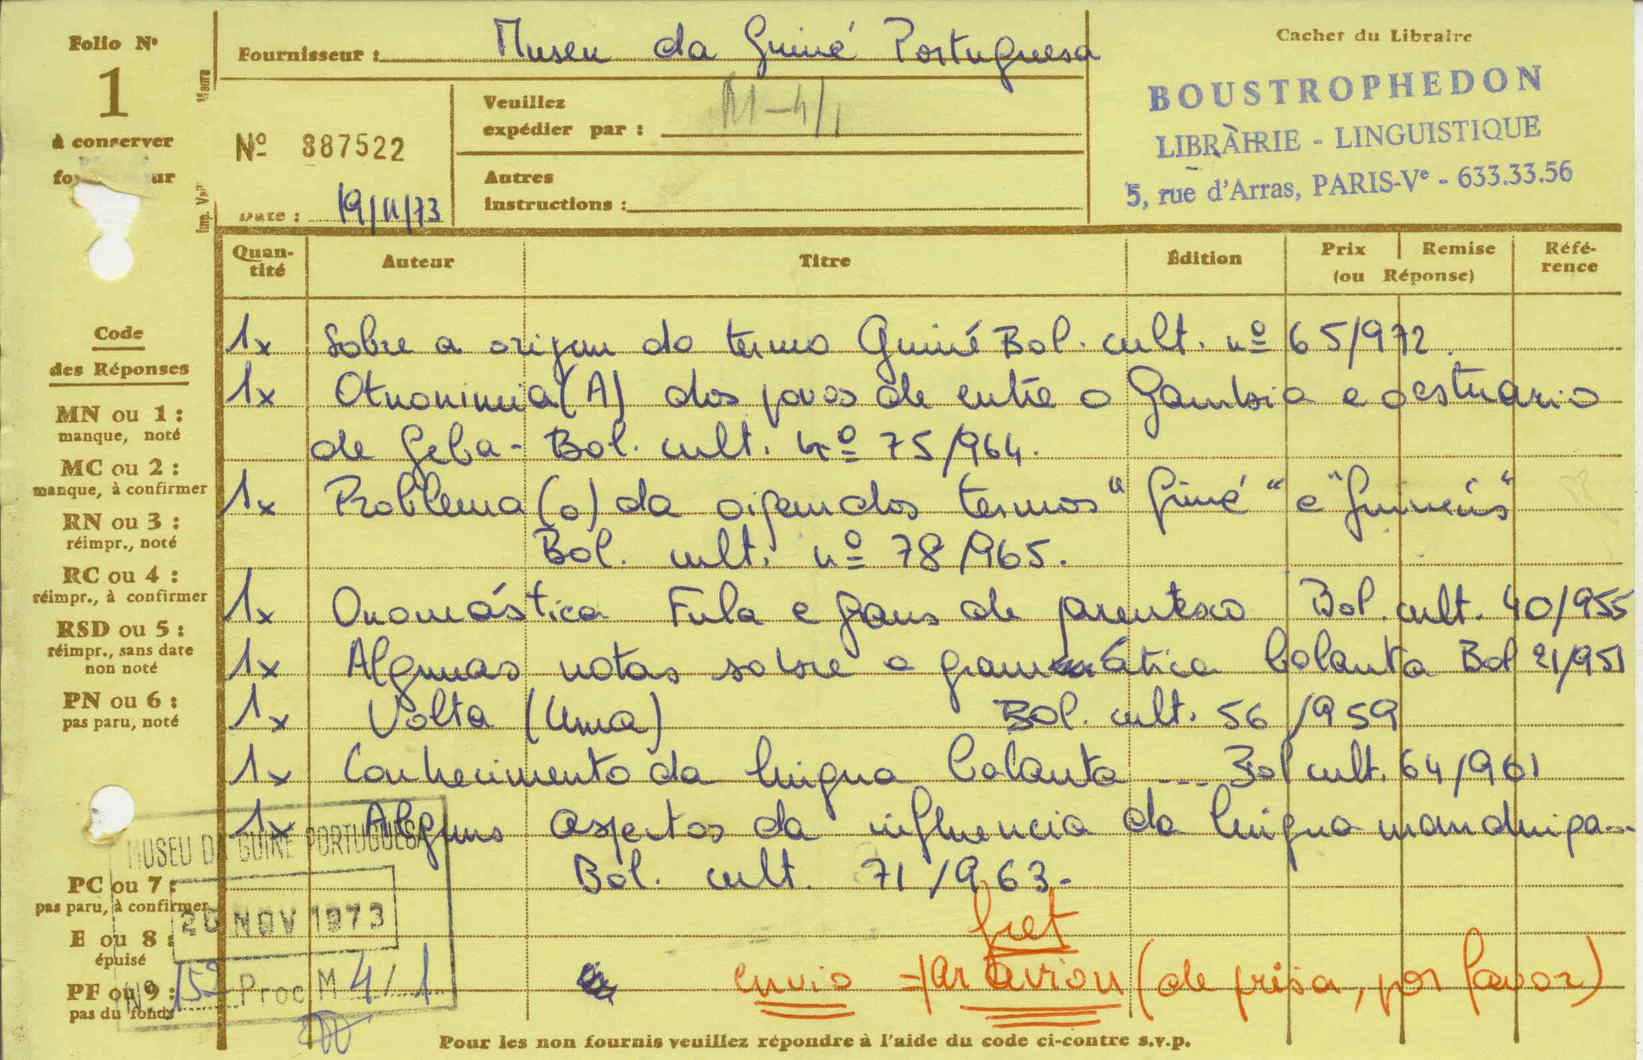 Folio Nº
1
à conserver
Fournisseur : Museu da Guiné Portuguesa
Veuillez
expédier par :
M-4/1
Nº 387522
Date : 19/11/73
Autres
instructions :
Cachet du Libraire
BOUSTROPHEDON
LIBRAIRIE - LINGUISTIQUE
5, rue d'Arras, PARIS-Vᵉ - 633.33.56
Quan-
tité
Auteur
Titre
Édition
Prix
Remise
(ou Réponse)
Réfé-
rence
1x Sobre a origem do termo Guiné Bol. cult. nº 65/972.
1x Etnonimia (A) dos povos de entre o Gambia e o estuario
de Geba - Bol. cult. nº 75/964.
1x Problema (o) da origem dos termos "Guiné" e "Guinéus"
Bol. cult. nº 78/965.
1x Onomástica Fula e graus de parentesco Bol. cult. 40/955
1x Algumas notas sobre a gramática balanta Bol 21/951
1x Volta (Uma) Bol. cult. 56/959
1x Conhecimento da lingua balanta --- Bol cult. 64/961
1x Alguns aspectos da influencia da lingua mandinga...
Bol. cult. 71/963-
fret
envio par avion (de prisa, por favor)
Code
des Réponses
MN ou 1 :
manque, noté
MC ou 2 :
manque, à confirmer
RN ou 3 :
réimpr., noté
RC ou 4 :
réimpr., à confirmer
RSD ou 5 :
réimpr., sans date
non noté
PN ou 6 :
pas paru, noté
PC ou 7 :
pas paru, à confirmer
E ou 8 :
épuisé
PF ou 9 :
pas du fonds
MUSEU DA GUINÉ PORTUGUESA
20 NOV 1973
Nº 152 Proc M 4/1
Pour les non fournis veuillez répondre à l'aide du code ci-contre s.v.p.